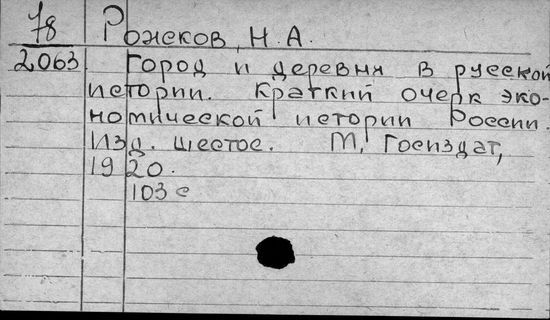 78 Рожков, Н. А.
2063 Город и деревня в русской
истории. Краткий очерк эко-
номической истории России.
Изд. шестое. М, Госиздат,
1920.
103 с